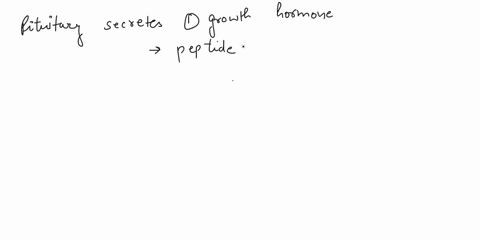 Pituitary secretes ① growth hormone
→ peptide.